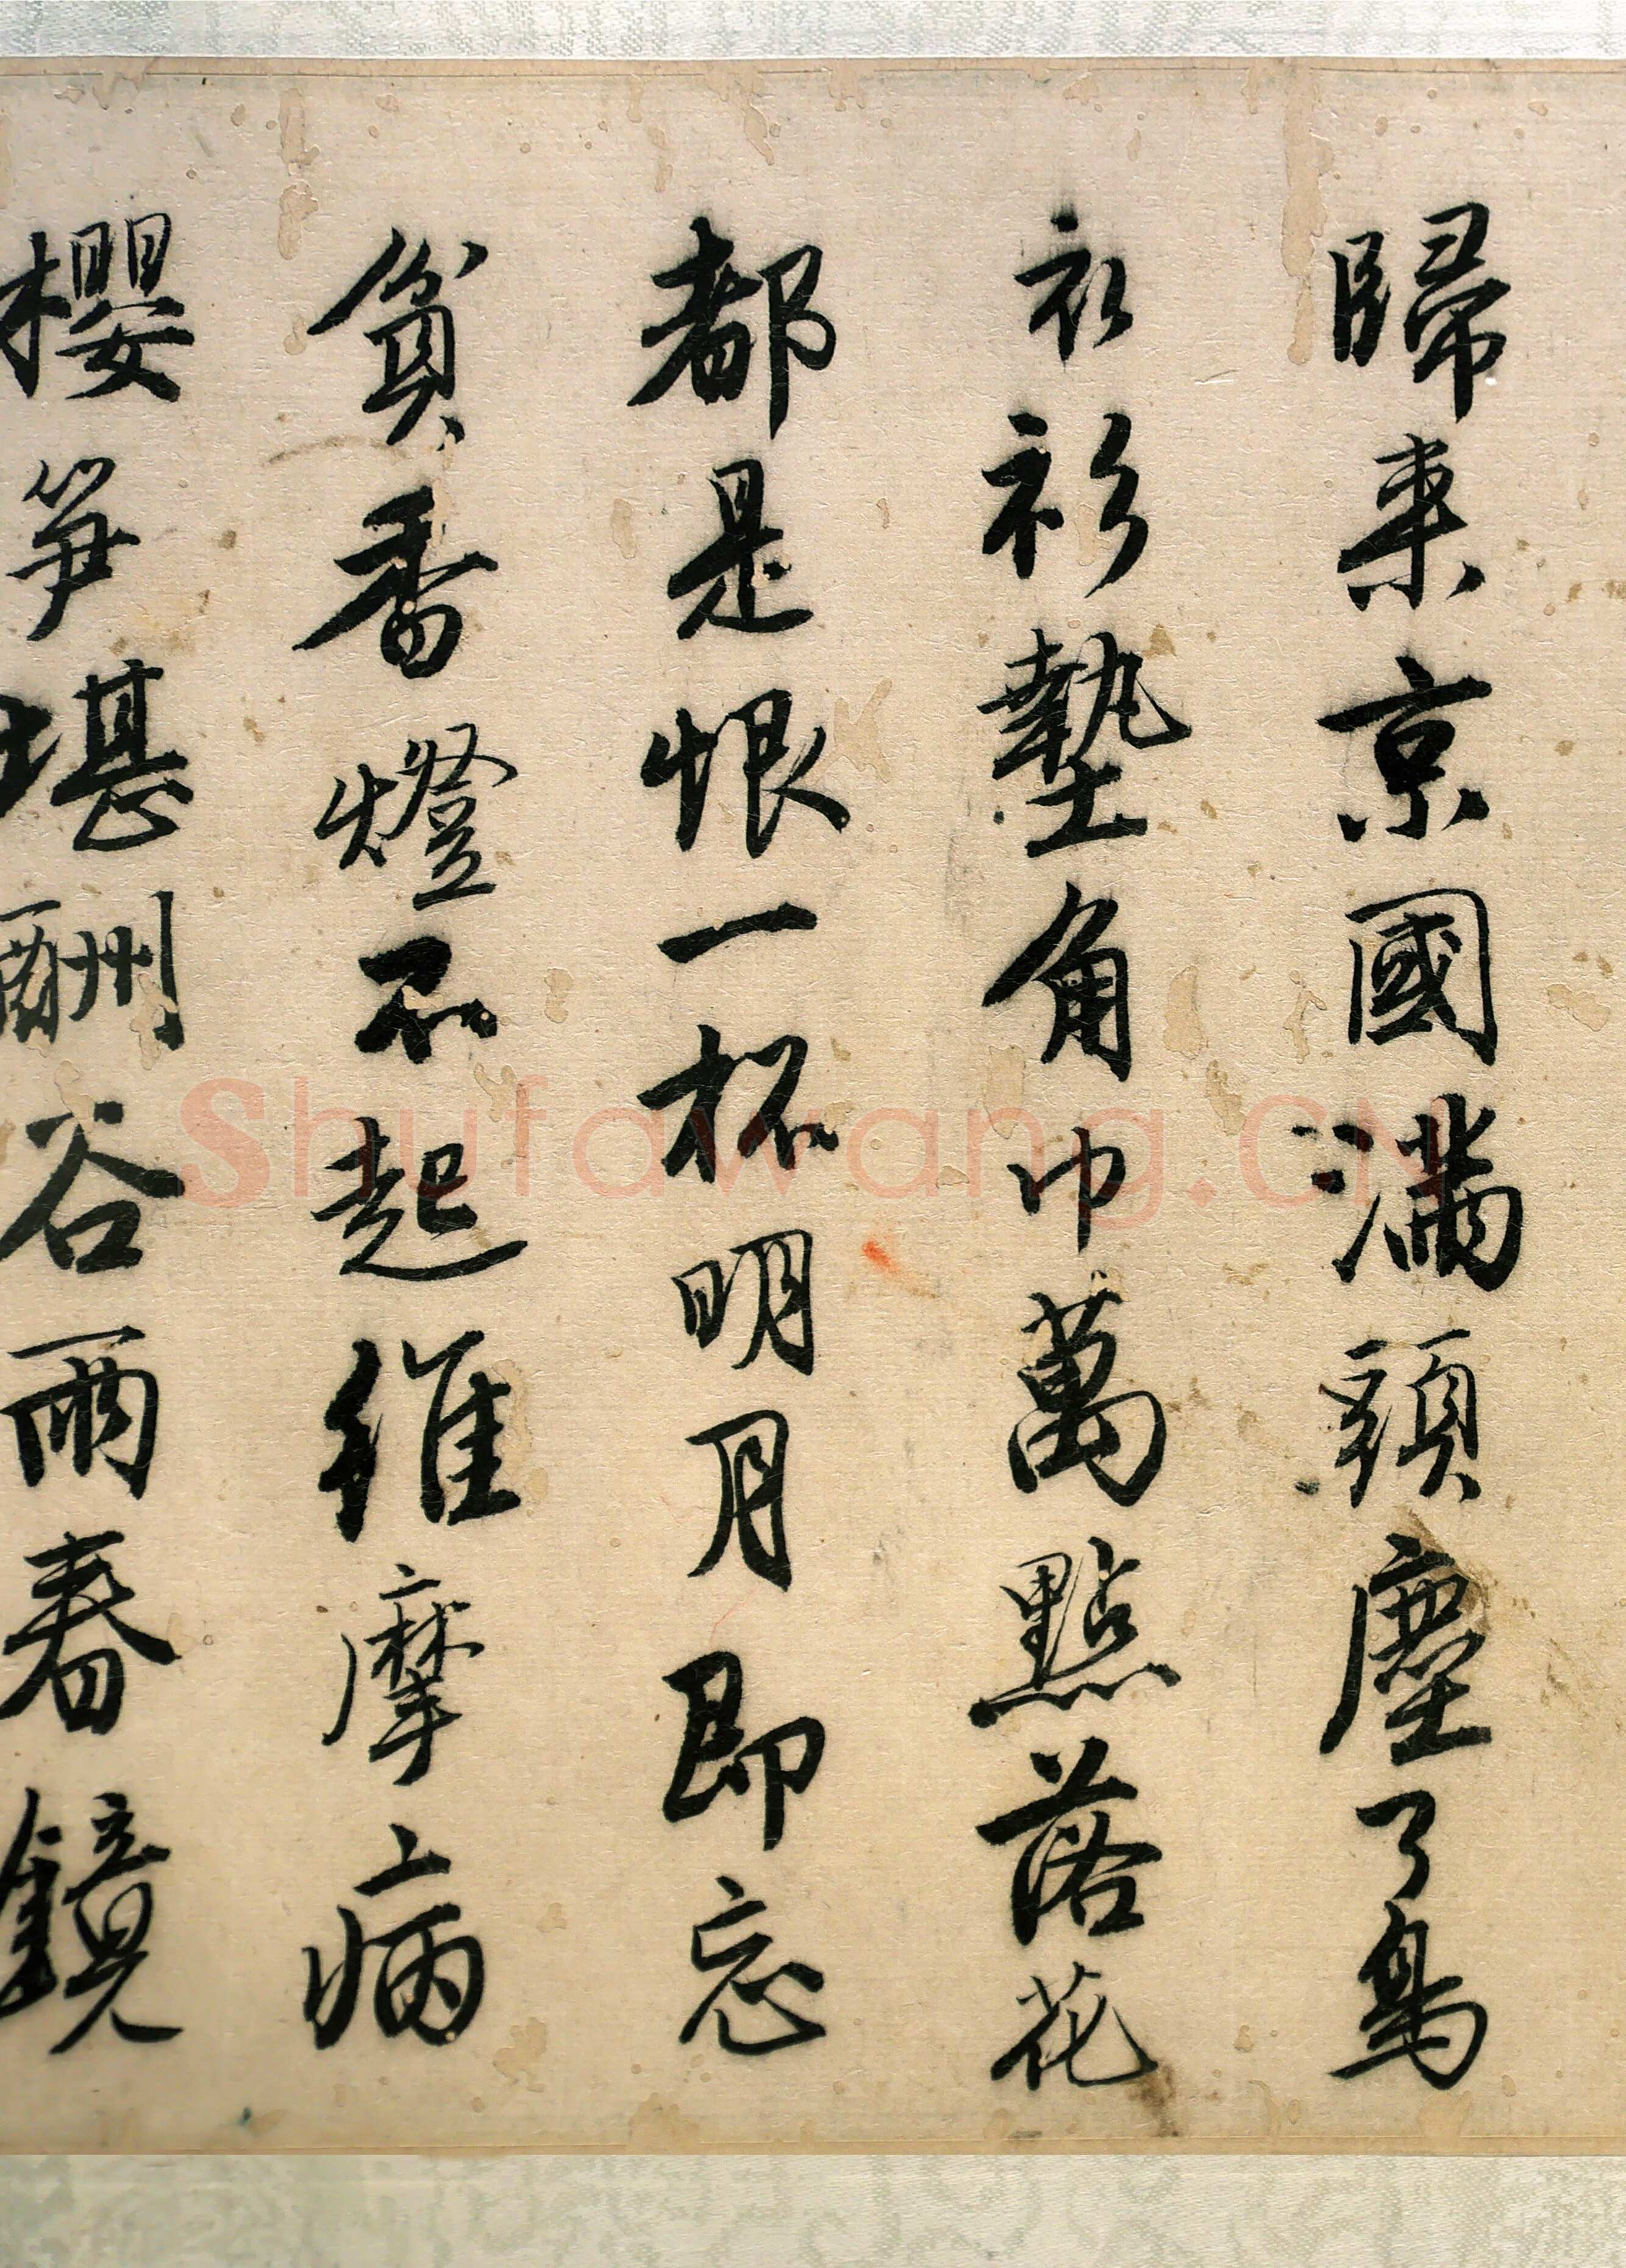 歸来京國滿頭塵了鳥
衣衫墊角巾萬點落花
都是恨一杯明月即忘
貧香燈不起維摩病
櫻笋堪酬谷雨春鏡
Shufawang.CN